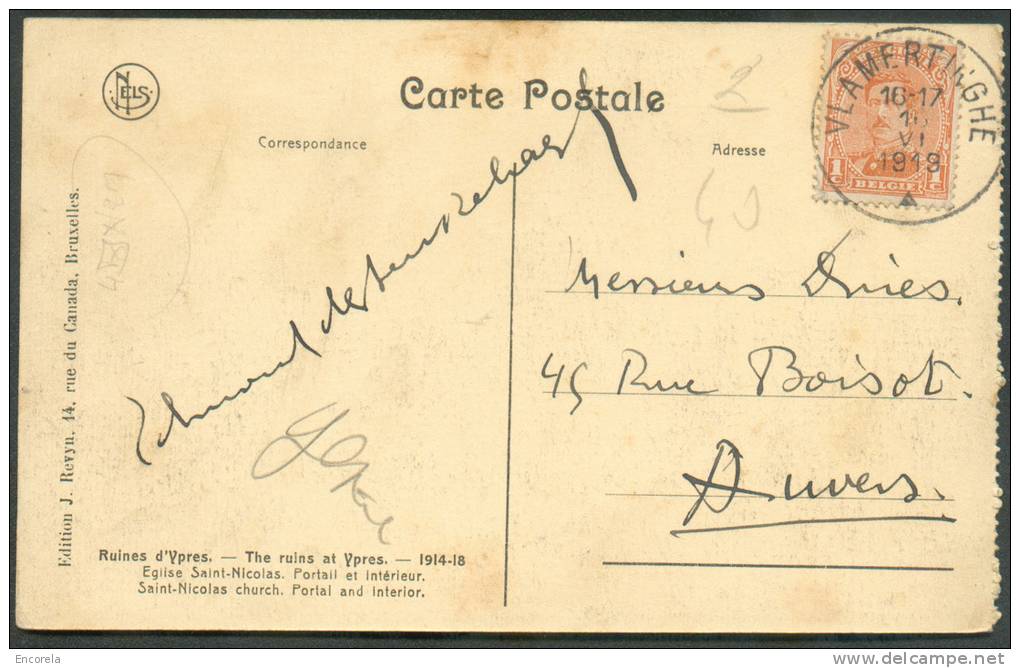 NELS
Carte Postale
Correspondance
Adresse
VLAMERTINGHE
16-17
VI
1919
1c 1c
BELGIE
2
Messieurs Dries.
45 Rue Boisot.
Anvers.
Edition J. Revyn, 44, rue du Canada, Bruxelles.
Ruines d'Ypres. — The ruins at Ypres. — 1914-18
Eglise Saint-Nicolas. Portail et intérieur.
Saint-Nicolas church. Portal and interior.
Encorela
delcampe.net